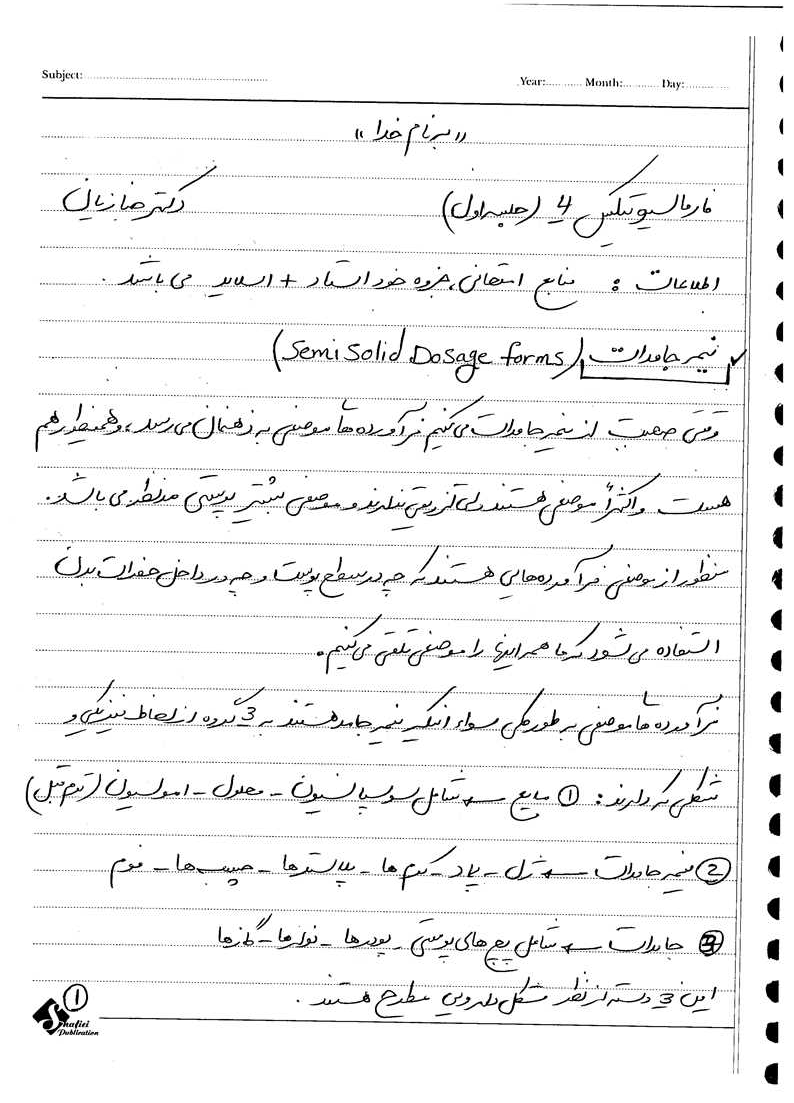 Subject: Year: Month: Day:
«بنام خدا»
فارماسیوتیکس 4 (جلسه اول) دکتر رضا زیائی
اطلاعات : منابع امتحانی، جزوه خود استاد + اسلاید می باشد .
✓ نیمه جامدات (Semi Solid Dosage forms)
وقتی صحبت از نیمه جامدات می کنیم فرآورده ها موضعی به ذهنمان می رسد، و همینطور هم
هست و اکثراً موضعی هستند ولی تزریقی ندارند و موضعی بیشتر پوستی مدنظر می باشد.
منظور از موضعی فرآورده هایی هستند که چه در سطح پوست و چه در داخل حفرات بدن
استفاده می شود که ما همه اینها را موضعی تلقی می کنیم.
فرآورده ها موضعی به طور کلی سواء اینکه نیمه جامد هستند به 3 گروه از لحاظ فیزیکی و
شکلی که دارند : ① مایع ← شامل سوسپانسیون - محلول - امولسیون (ترم قبل)
② نیمه جامدات ← ژل - پاد - کرم ها - پلاسترها - چسب ها - فوم
③ جامدات ← شامل پچ های پوستی - پودرها - نوارها - گازها
این 3 دسته از نظر شکل دارویی مطرح هستند .
①
Shafiei
Publication